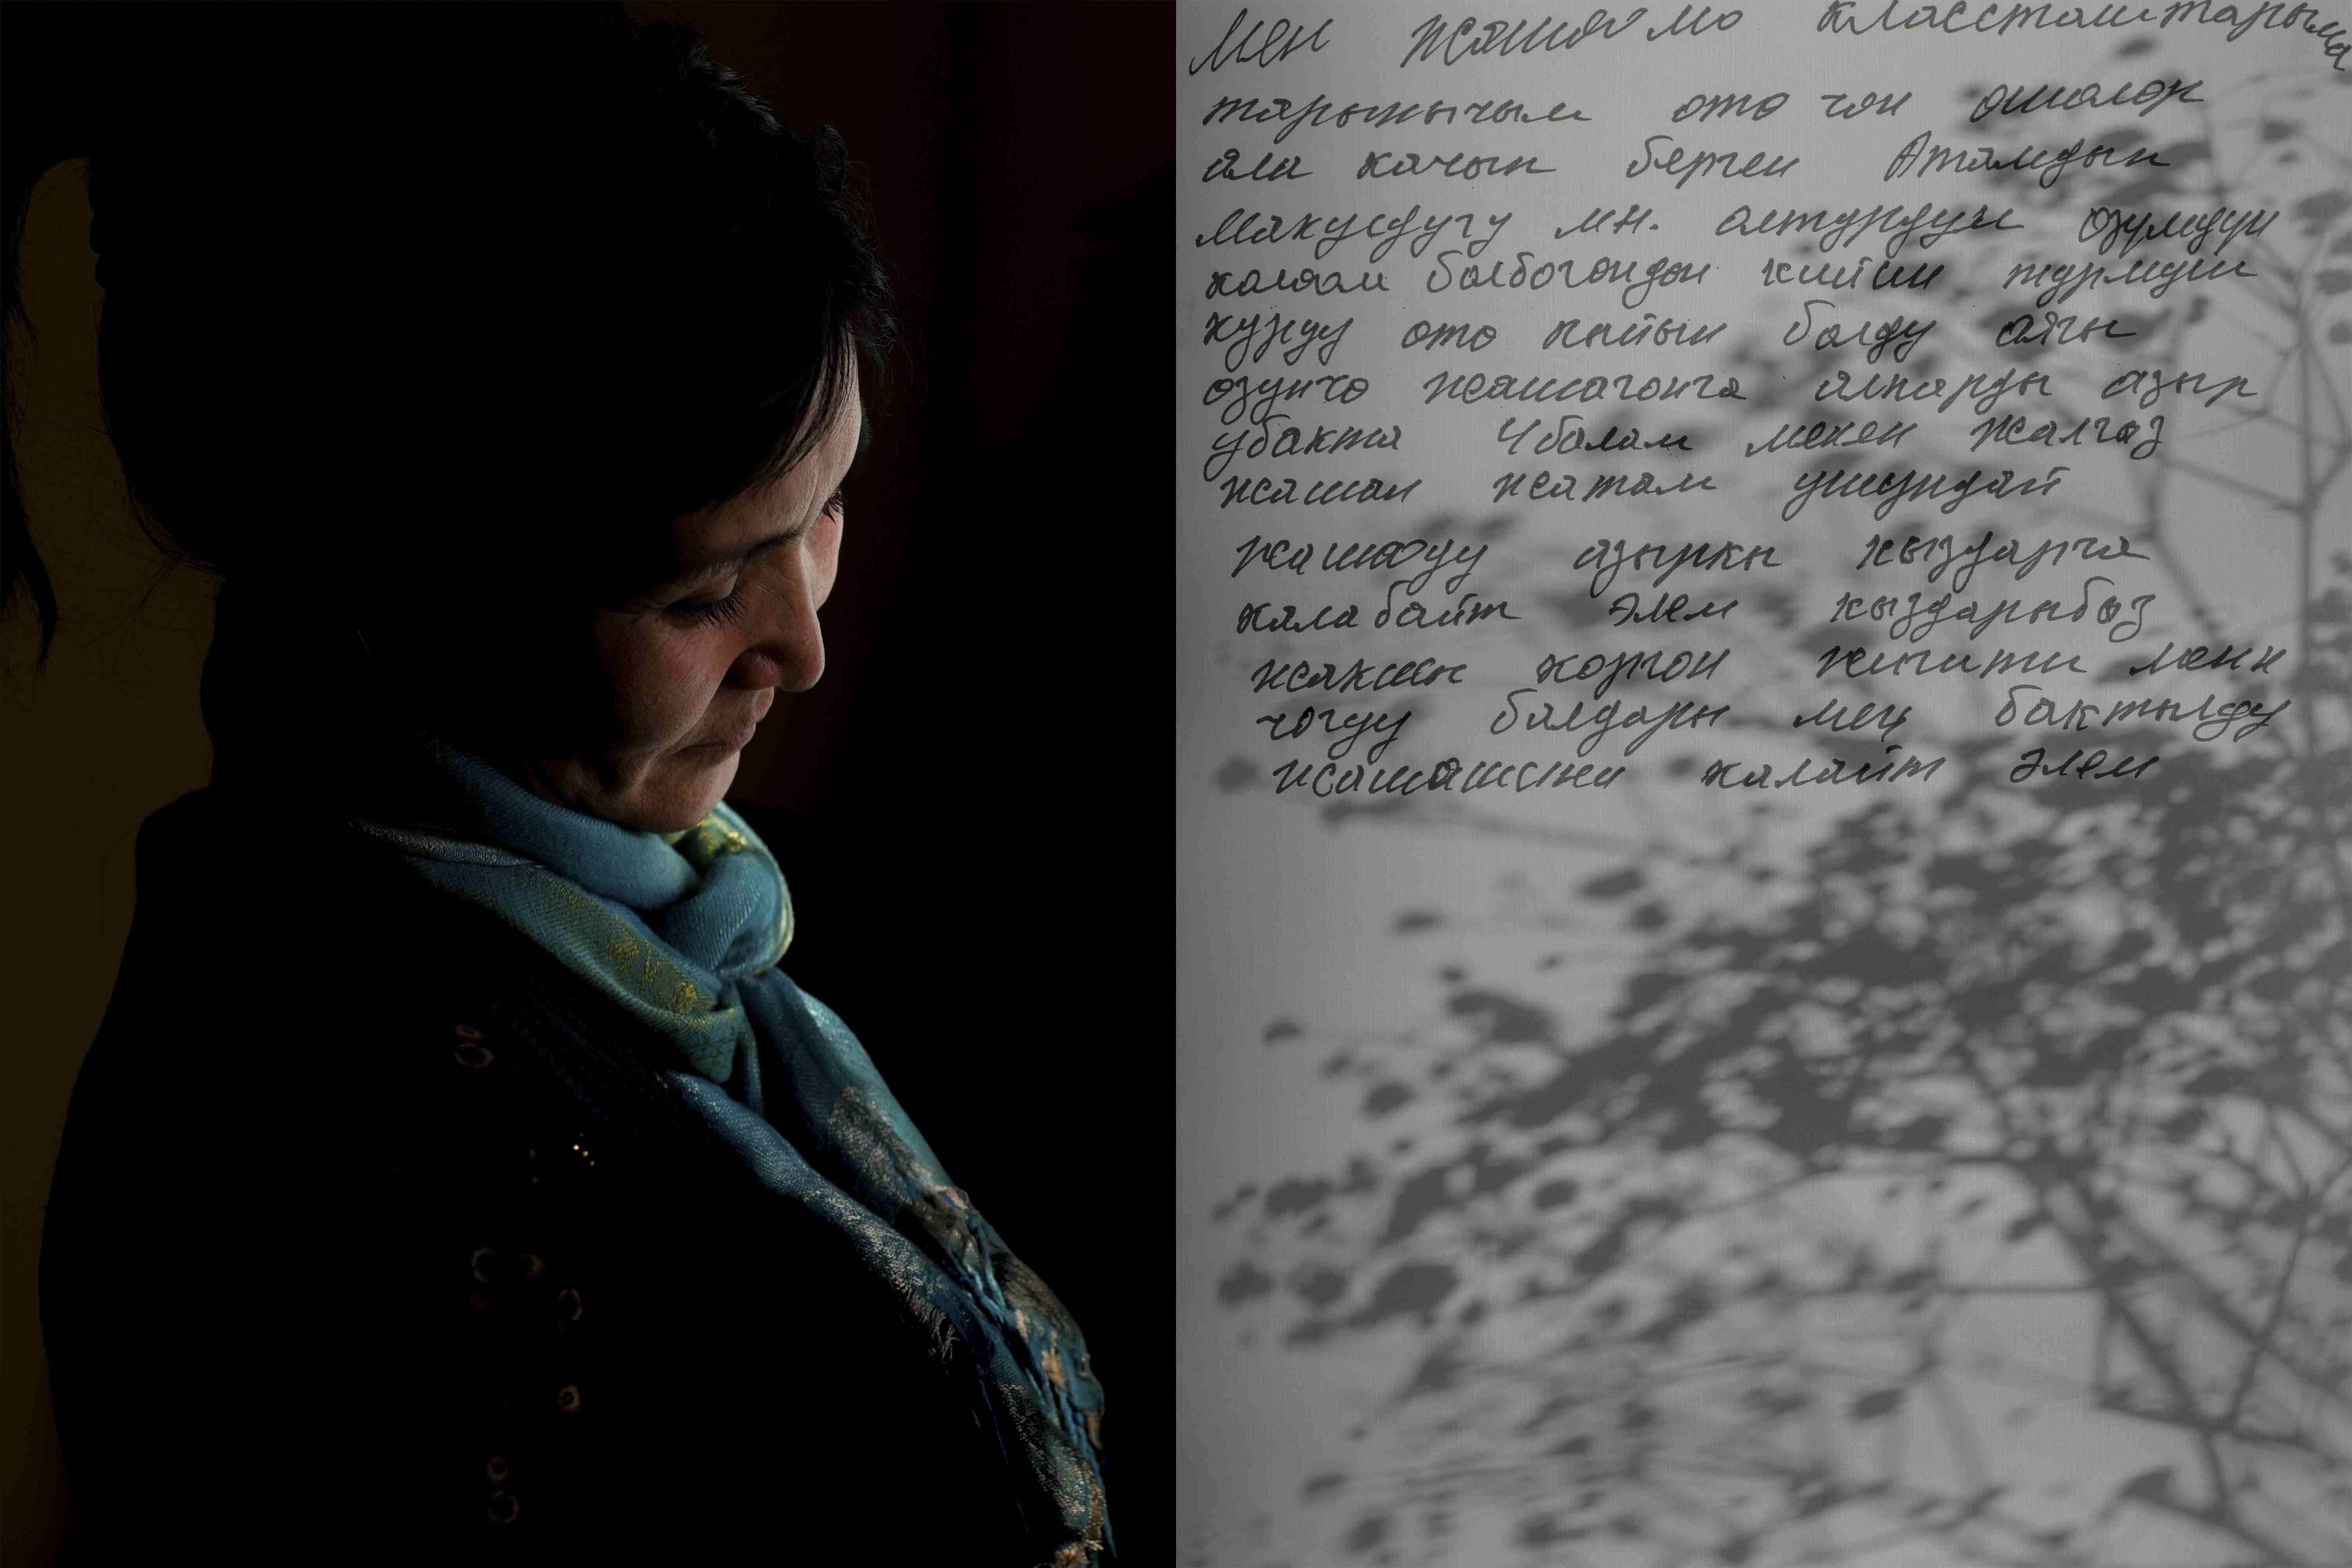 мен жашоомо класстاштарыма
тарынычым ото чон ошолор
ала качып берген Атамдын
макулдугу мн. олтурдум озумдун
каалам болбогондон кийин турмуш
курду ото кыйын болду аягы
озунчо жашаганга алпарды азыр
убакта 4 балам менен жалгыз
жашап жатам ушундай
жашоду азыркы кыздарга
каалабайт элем кыздарыбыз
жакшы коргон жигити менн
чогуу балдары мен бактылду
жашашсын каалайт элем